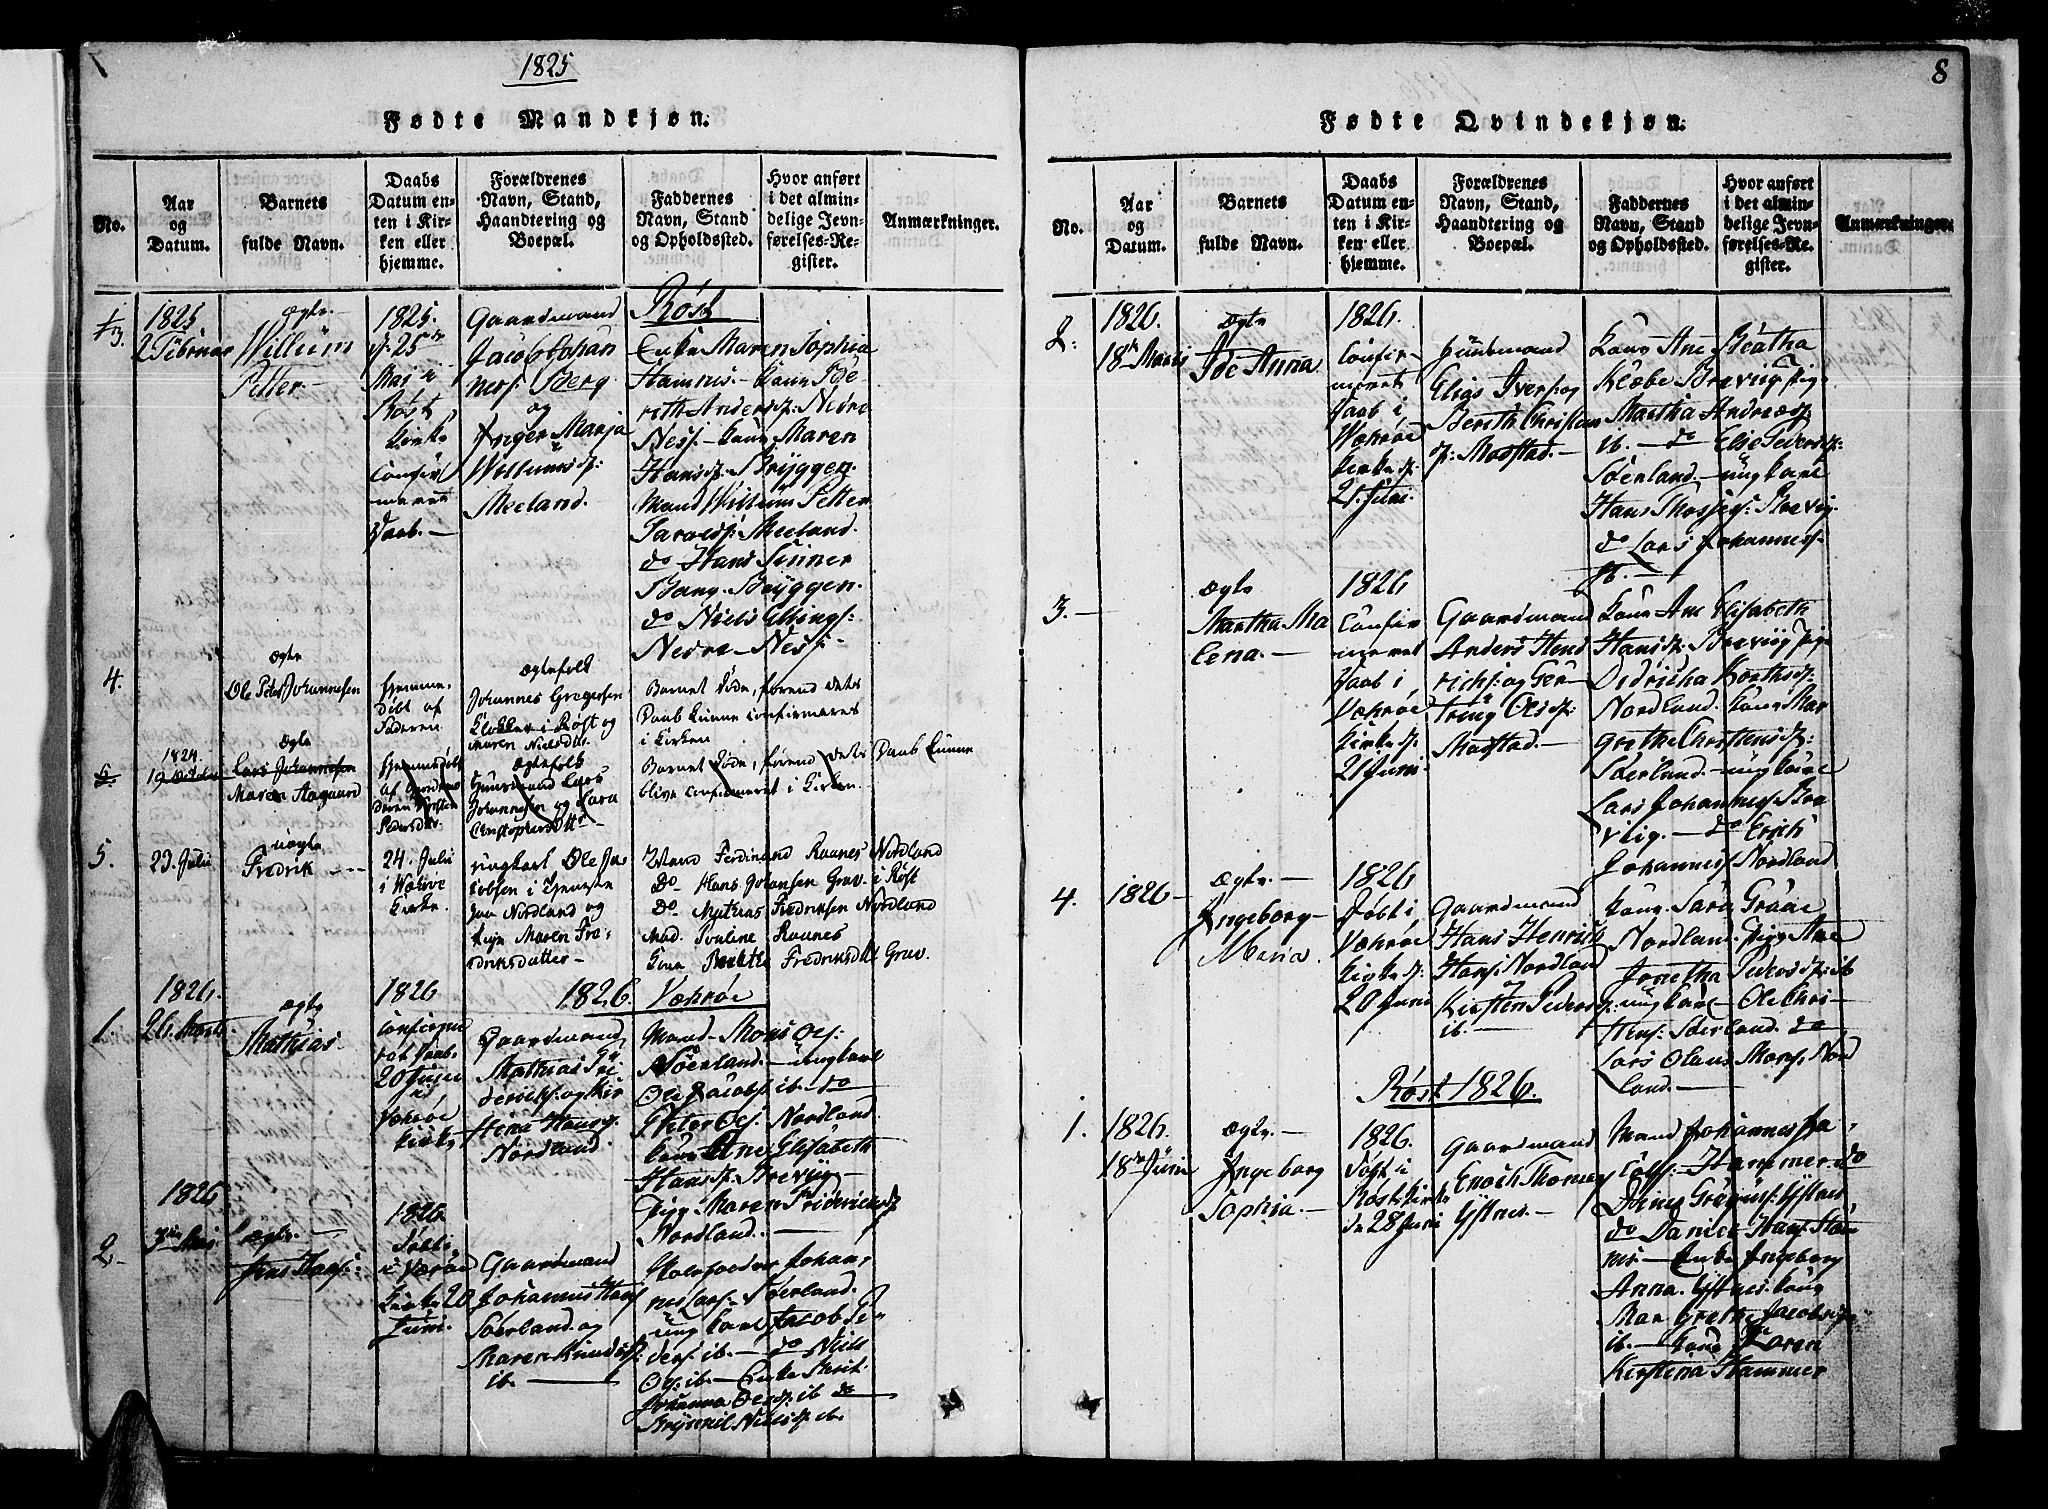 1825
Fødte Mandkjøn.
No.
Aar
og
Datum.
Barnets
fulde Navn.
Daabs
Datum en-
ten i Kir-
ken eller
hjemme.
Forældrenes
Navn, Stand,
Haandtering og
Boepæl.
Faddernes
Navn, Stand
og Opholdssted.
Hvor anført
i det almin-
delige Jevn-
førelses-Re-
gister.
Anmærkninger.
1825
2 Februar
Ægte
Willum
Petter
1825.
d. 25de
Maj i
Røst
Kirke
Confir
meret
Daab.
Gaardmand
Jacob Johan
nes: Berg
og
Inger Maria
Willumsd:
Meeland.
Røst
Enke Maren Sophia
Hamnis. Kone Be
reth Andersd: Nedre
Ness. Kone Maren
Hansd: Bryggen.
Mand Willum Petter
Meeland.
do Hans
Bang. Bryggen.
do Niels Ellings:
Nedre Ness
4.
Ægte
Ole Peter Johannesen
Hjemme
døbt af
Faderen
Ægtefolk
Johannes Gregersen
Klokker i Røst og
Maren Nielsdtr.
Barnet døde, førend dets
Daab kunne confirmeres
i Kirken
6.
1824.
19 October
Ægte
Lars Johannesen
Maren Aagaard
Hjemmedøbt
af
Pedersdtr.
Ægtefolk
Huusmand Lars
Johannesen og Sara
Christophersdtr
Barnet døde, førend dets Daab kunne
blive confirmeret i Kirken.
5.
23. Julii
uægte
Fredrik
24. Julii
i Wærøe
Kirke
ungkarl Ole Ja
cobsen i Tjeneste
paa Nordland og
Pige Maren Fre
driksdatter
Mand Ferdinand Raanes Nordland
Do Hans Johansen Grav. i Røst
Do Mathias Fredriksen Nordland
Mad. Pauline Raanes
Kone Berthe Fredriksdtr Grav.
1826. Værøe
1.
1826.
26. Marts
Ægte
Mathias
1826
Confirme
ret Daab.
20 Juni
Værøe
Kirke
Gaardmand
Mathias Fri
derichs: og Kir
stina Hansd:
Nordland.
Mand Mons Ols:
Søerland. ungkarl
Ole Jacobs: ib. do
Peter Ols: Nordland.
Kone Ane Elisabeth
Hansd: Brevig
Pige Maren Fridrichsd:
Nordland.
2.
1826
Mai
Ægte.
Jens Hans:
1826.
Døbt
i Værøe
Kirke 20
Juni.
Gaardmand
Johannes Hans
Søerland og
Maren Knudsd:
ib.
Skoleholder Johan
nes Lars: Søerland.
ung karl Jacob Pe
ders: ib. do Niels
Ols: ib. Enke Berit
Johanna Olsd: ib do
Nielsd: ib.
8
Fødte Qvindekjøn.
No.
Aar
og
Datum.
Barnets
fulde Navn.
Daabs
Datum en-
ten i Kir-
ken eller
hjemme.
Forældrenes
Navn, Stand,
Haandtering og
Boepæl.
Faddernes
Navn, Stand
og Opholdssted.
Hvor anført
i det almin-
delige Jevn-
førelses-Re-
gister.
Anmærkninger.
2.
1826.
18de Marts
Ægte
Ide Anna
1826.
Confir
meret
Daab i
Wærøe
Kirke d.
21 Juni.
Huusmand
Elias Ivers: og
Bereth Christens
d: Mostad.
Kone Ane Beatha
Klæbo Brevig Pige
Martha Andreasd:
ib. do Elie Pedersd:
Søerland. ungkarl
Hans
do Lars Johannes:
ib.
3.
Ægte
Martha Ma
lena.
1826
Confir
meret
Daab i
Værøe
Kirke d.
21 Juni
Gaardmand
Anders Hend
richs: og Ger
trug Olsd:
Mostad.
Kone Ane Elisabeth
Hansd: Brevig Pige
Didricha
Nordland. Kone Mar
grethe Christensd:
Søerland. ungkarl
Lars Johannes: Bre
vig. do Erich
Johannes: Nordland
4.
1826
Ægte.
Ingeborg
Maria
1826
Døbt i
Værøe
Kirke d.
20 Juni
Gaardmand
Hans Henrich
Hans: Nordland
og
Kirsten Pedersd:
ib.
Kone Sara Graae
Nordland. Pige Ane
Jonetha Pedersd: ib
ungkarl Ole Chri
stens: Søerland. do
Lars Olaus Mons: Nord
land.
Røst 1826.
1.
1826.
18de Juni
Ægte.
Ingeborg
Sophia.
1826.
Døbt i
Røst Kirke
d. 28 Juni
Gaardmand
Enoch Thomes
Ystnes.
Mand Johannes Ja
cobs: Hammer do
Ystnes
do Daniel Hans: Ham
nis Enke Ingeborg
Anna. Ystnes. Kone
Mar Grethe Jacobsd:
ib. Kone Karen
Kirstina Hammer